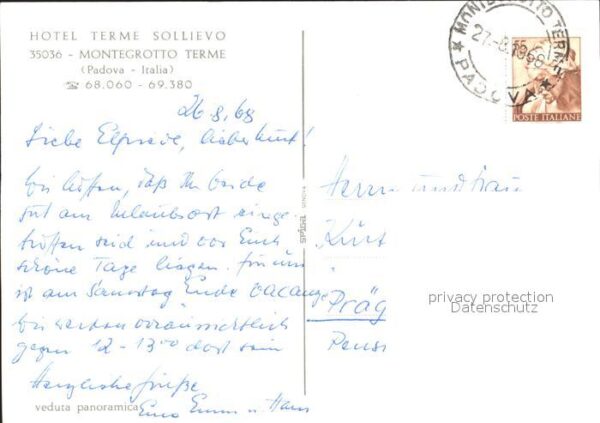 HOTEL TERME SOLLIEVO
35036 - MONTEGROTTO TERME
(Padova - Italia)
☎ 68.060 - 69.380
MONTEGROTTO TERME
27-8.1968
* PADOVA *
55
POSTE ITALIANE
26.8.68
Liebe Elfriede, lieber Kurt!
Wir hoffen, daß Ihr beide
gut am Urlaubsort einge-
troffen seid und vor Euch
schöne Tage liegen. Für uns
ist am Samstag Ende
Wir werden voraussichtlich
gegen 12 - 13°° dort sein
Herzliche Grüße
u. Hans
veduta panoramica
Herrn und Frau
Kurt
Präg
Pens
privacy protection
Datenschutz